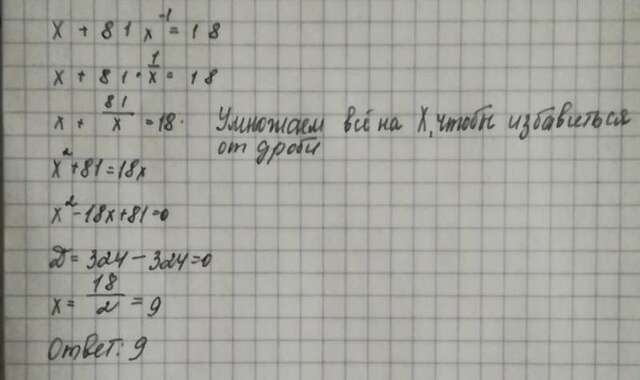 x + 81x⁻¹ = 18
x + 81 · 1/x = 18
x + 81/x = 18. Умножаем всё на X, чтобы избавиться
от дроби
x² + 81 = 18x
x² - 18x + 81 = 0
D = 324 - 324 = 0
x = 18/2 = 9
Ответ: 9